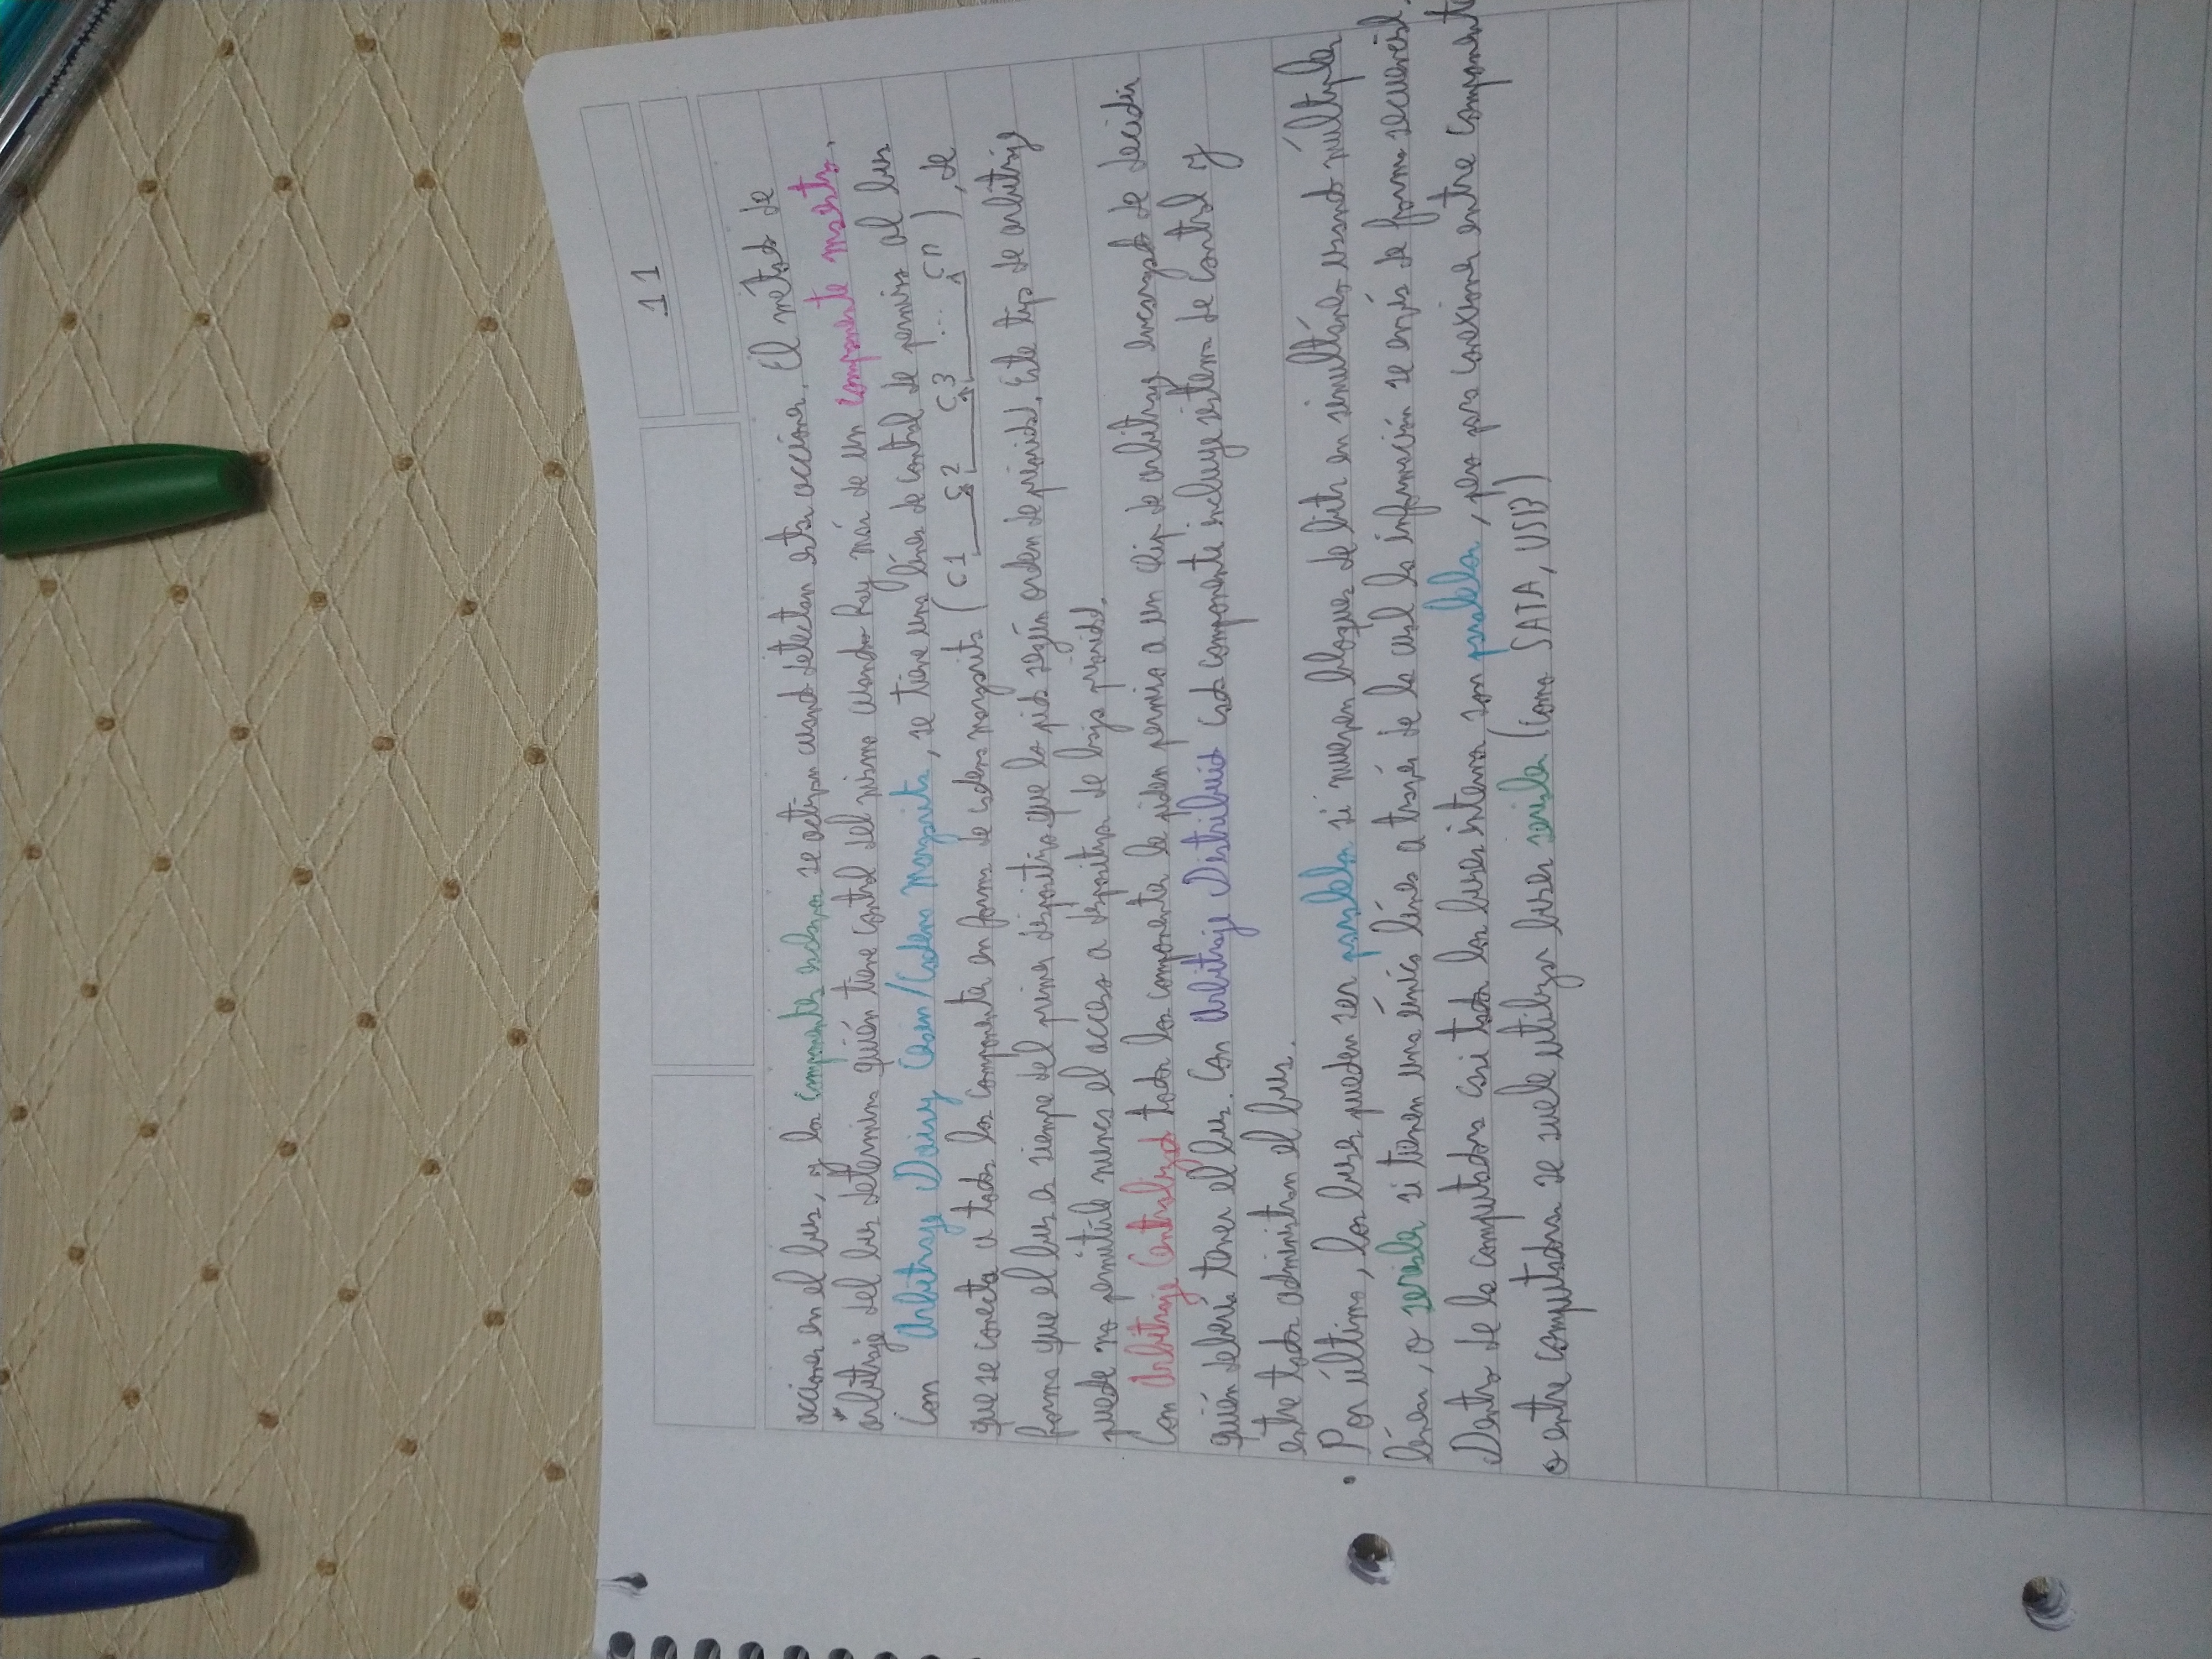 11
acciones en el bus, y los componentes esclavos se activan cuando detectan estas acciones. El método de
arbitraje del bus determina quién tiene control del mismo cuando hay más de un componente maestro.
Con Arbitraje Daisy Chain/Cadena Margarita, se tiene una línea de control de permiso al bus
que se conecta a todos los componentes en forma de cadena margarita (C1 C2 C3 ... Cn), de
forma que el bus es siempre del primer dispositivo que lo pida según orden de prioridad. Este tipo de arbitraje
puede no permitirle nunca el acceso a dispositivos de baja prioridad.
Con Arbitraje Centralizado todos los componentes le piden permiso a un chip de arbitraje encargado de decidir
quién debería tener el bus. Con Arbitraje Distribuido cada componente incluye sistema de control y
entre todos administran el bus.
• Por último, los buses pueden ser paralelos si mueven bloques de bits en simultáneo usando múltiples
líneas, o seriales si tienen una única línea a través de la cual la información se envía de forma secuencial.
Dentro de la computadora casi todos los buses internos son paralelos, pero para conexiones entre componentes
o entre computadoras se suele utilizar buses seriales (como SATA, USB)